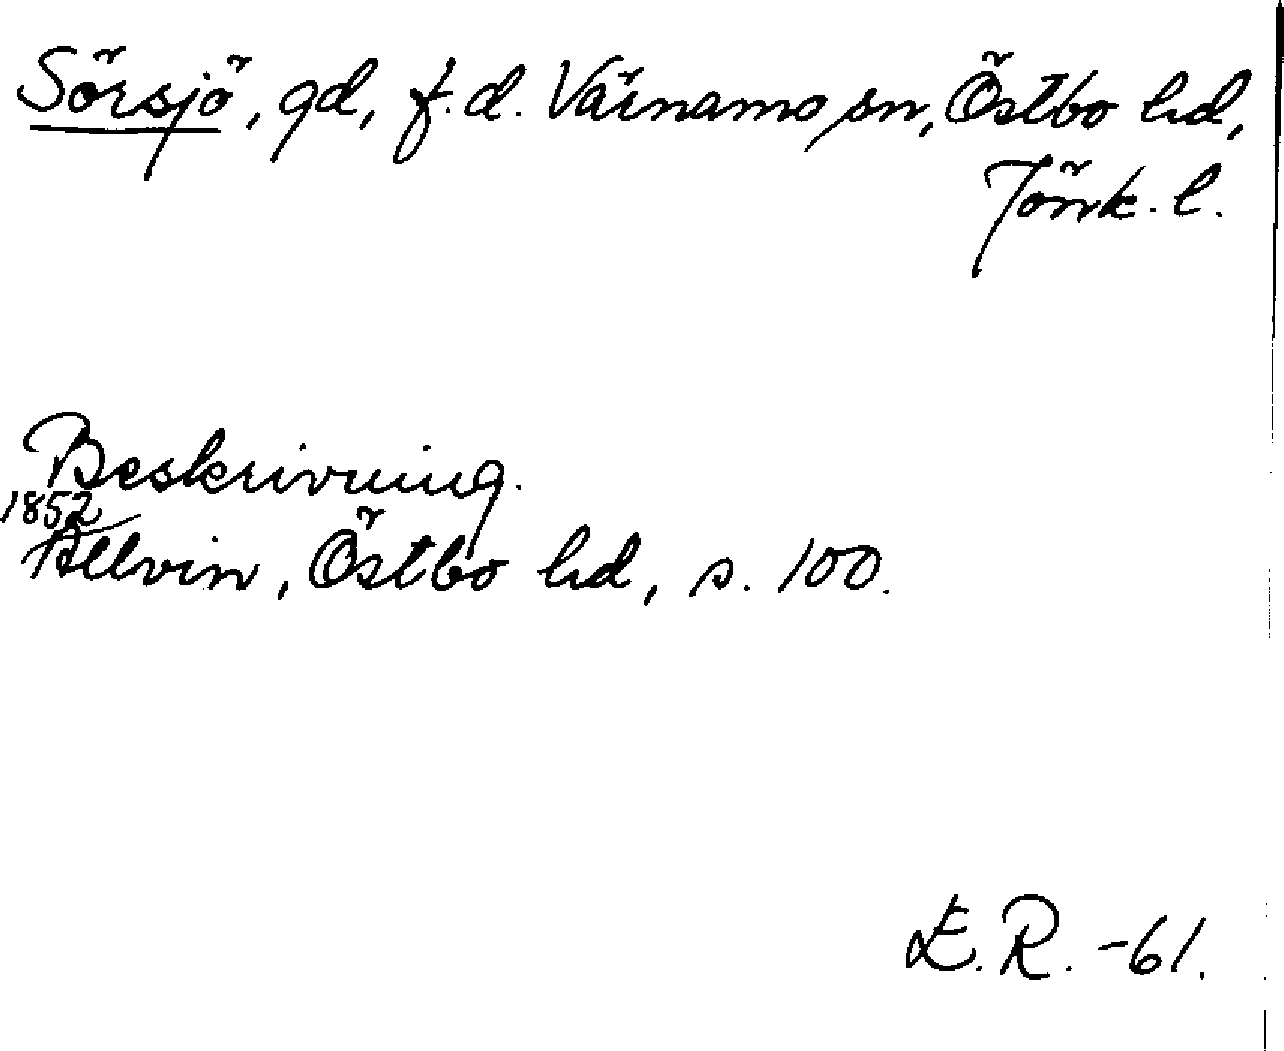 Sörsjö, gd, f.d. Värnamo sn, Östbo hd,
Jönk. l.
Beskrivning.
1852
Allvin, Östbo hd, s. 100.
E.R. -61.